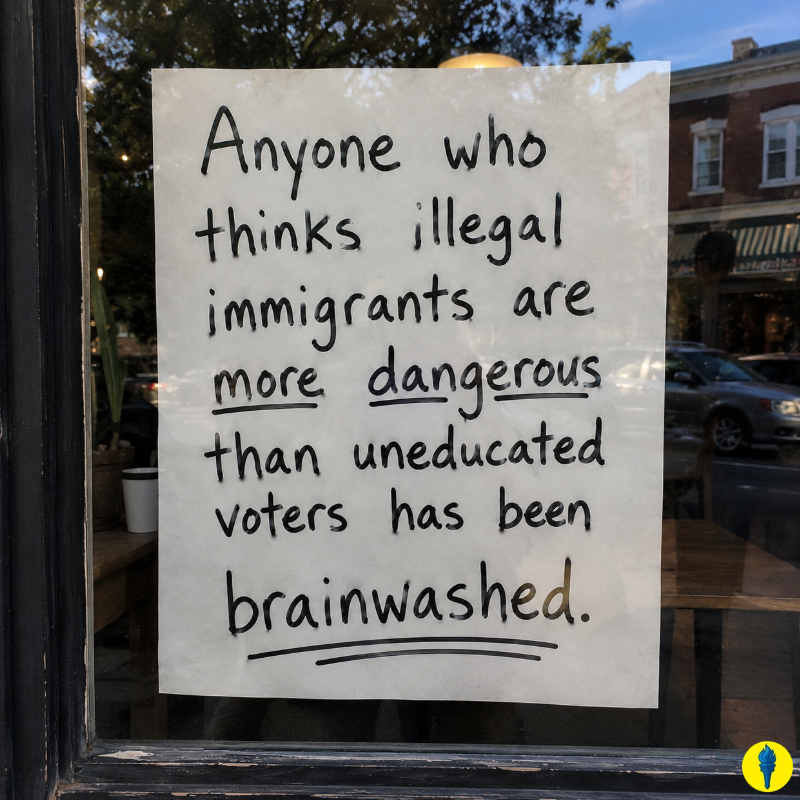 Anyone who
thinks illegal
immigrants are
more dangerous
than uneducated
voters has been
brainwashed.